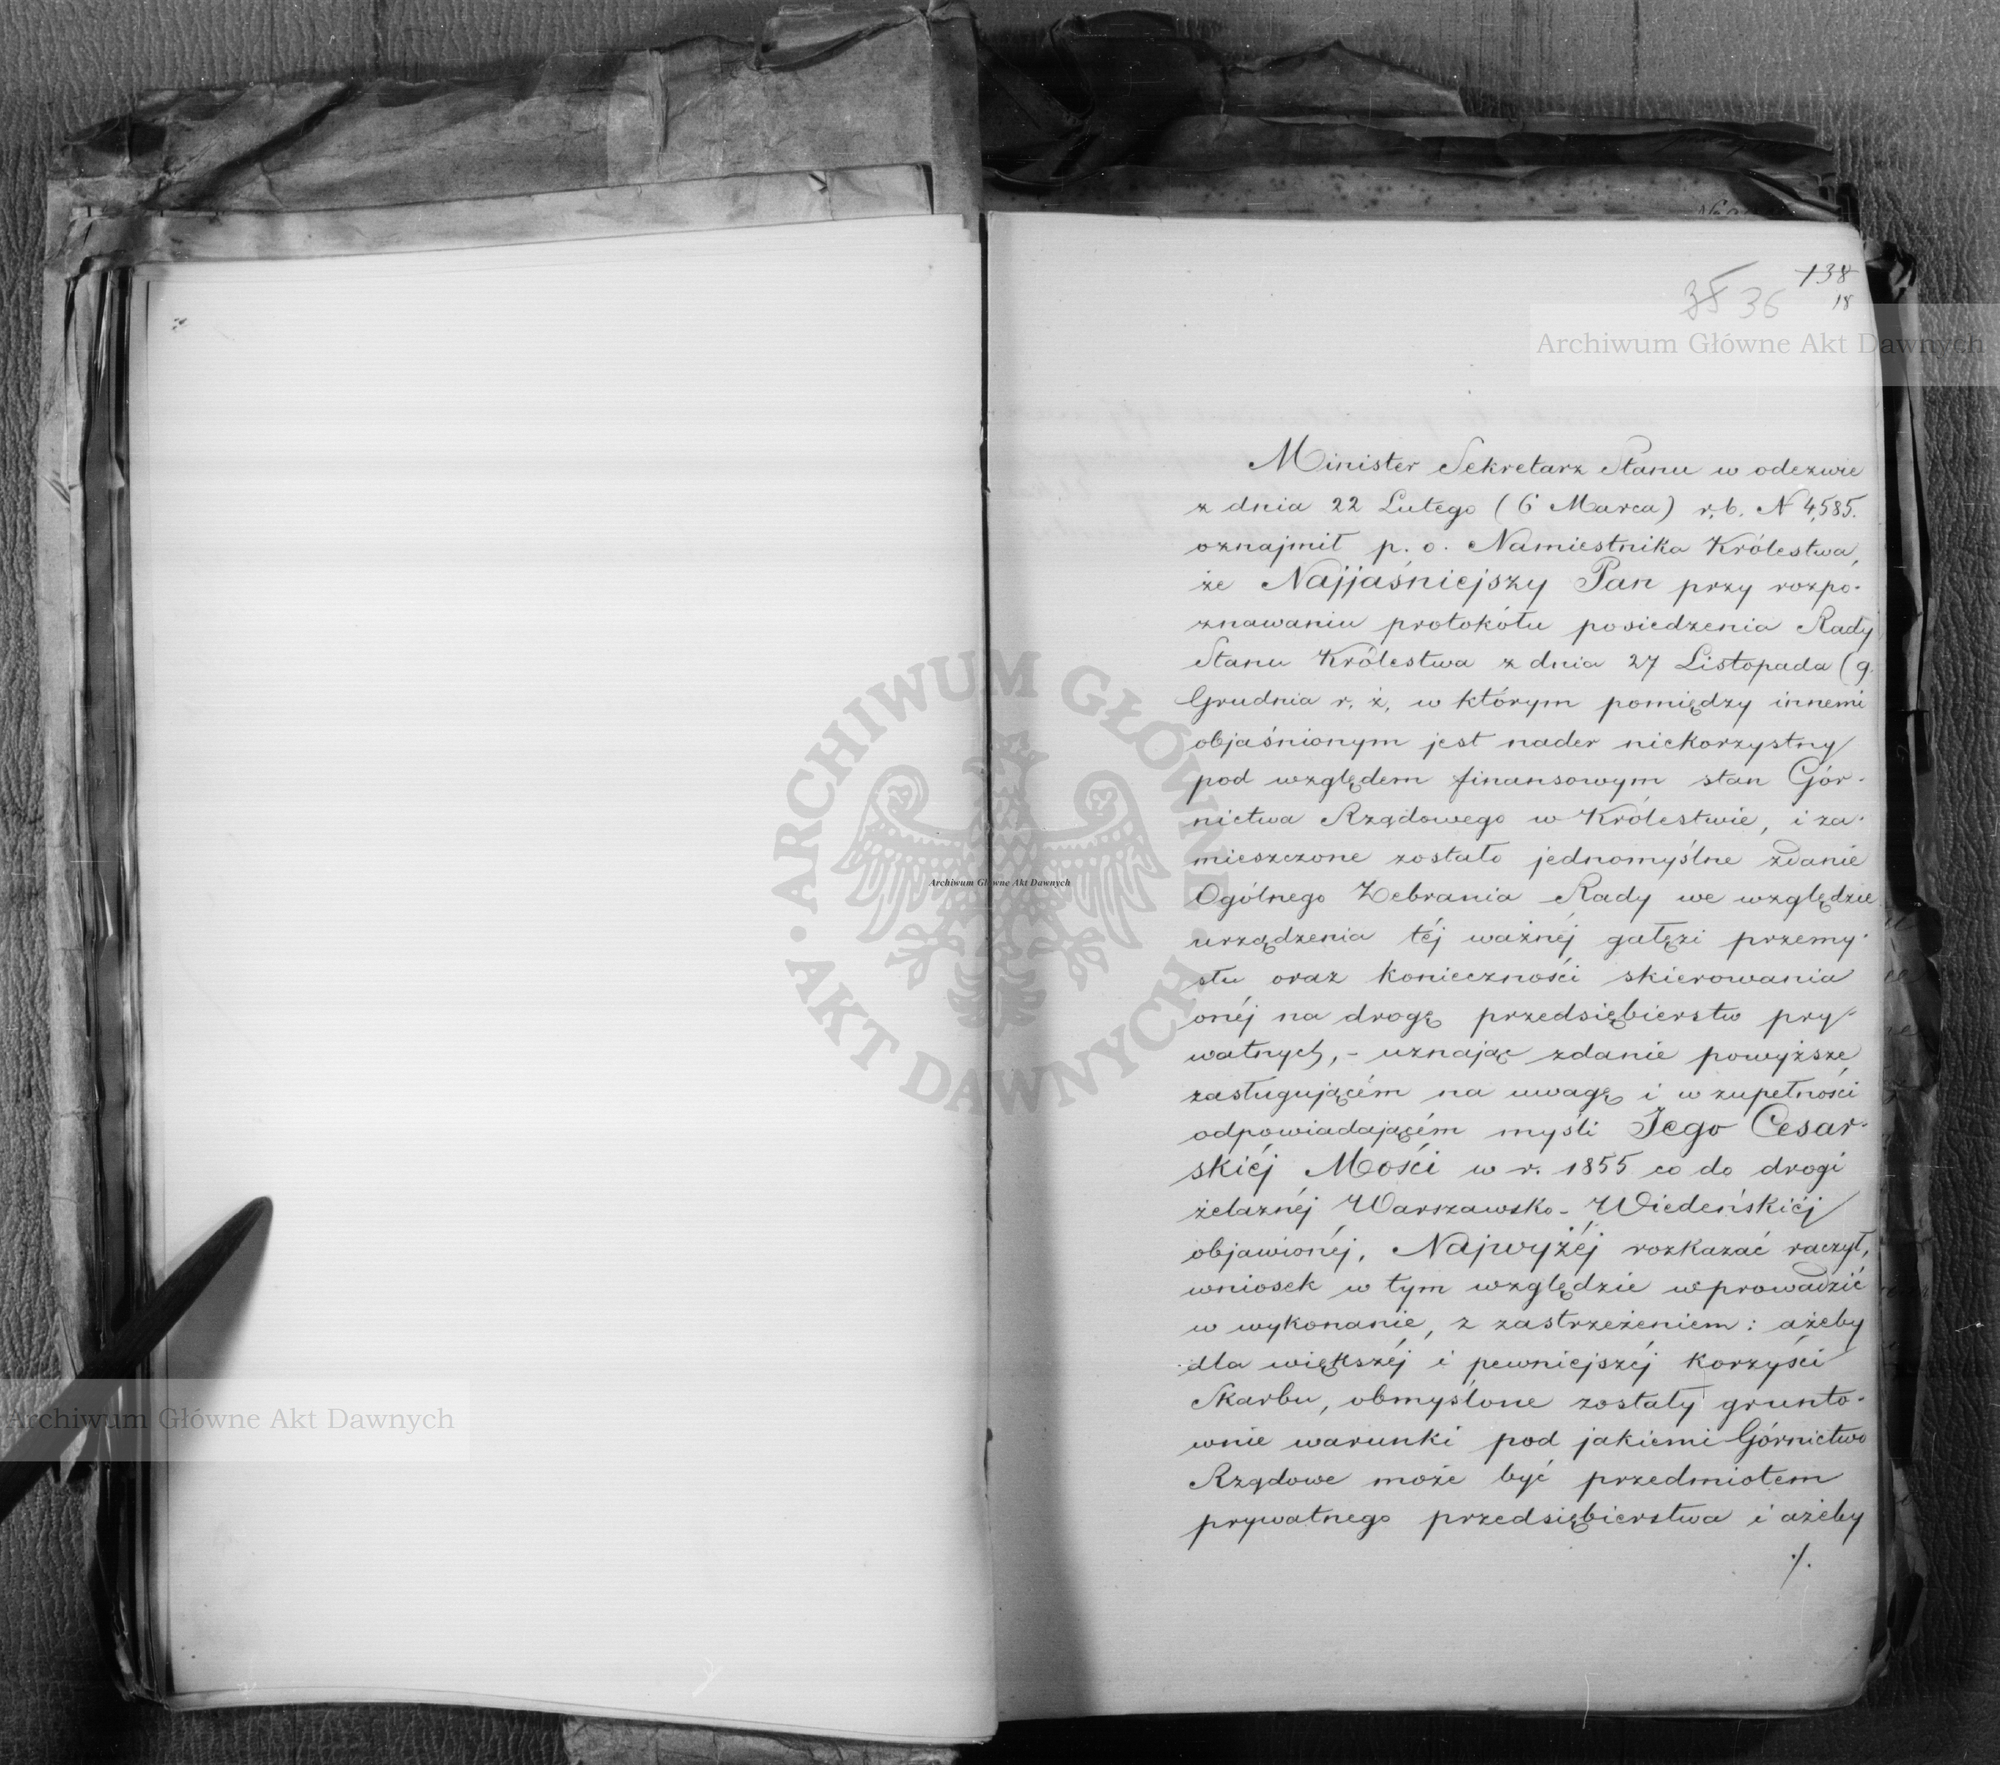 138
18
35 36
Archiwum Główne Akt Dawnych
Minister Sekretarz Stanu w odezwie
z dnia 22 Lutego (6 Marca) r. b. N 4,585.
oznajmił p. o. Namiestnika Królestwa,
że Najjaśniejszy Pan przy rozpo-
znawaniu protokółu posiedzenia Rady
Stanu Królestwa z dnia 27 Listopada (9.
Grudnia r. z, w którym pomiędzy innemi
objaśnionym jest nader niekorzystny
pod względem finansowym stan Gór-
nictwa Rządowego w Królestwie, i za-
mieszczone zostało jednomyślne zdanie
Ogólnego Zebrania Rady we względzie
urządzenia téj ważnéj gałęzi przemy-
słu oraz konieczności skierowania
onéj na drogę przedsiębierstw pry-
watnych, - uznając zdanie powyższe,
zasługującém na uwagę i w zupełności
odpowiadającém myśli Jego Cesar-
skiéj Mości w r. 1855 co do drogi
żelaznéj Warszawsko-Wiedeńskiéj
objawionéj, Najwyżéj rozkazać raczył,
wniosek w tym względzie wprowadzić
w wykonanie, z zastrzeżeniem: ażeby
dla większéj i pewniejszéj korzyści
Skarbu, obmyślone zostały grunto-
wnie warunki pod jakiemi Górnictwo
Rządowe może być przedmiotem
prywatnego przedsiębierstwa i ażeby
./.
ARCHIWUM GŁÓWNE
AKT DAWNYCH
Archiwum Główne Akt Dawnych
Archiwum Główne Akt Dawnych